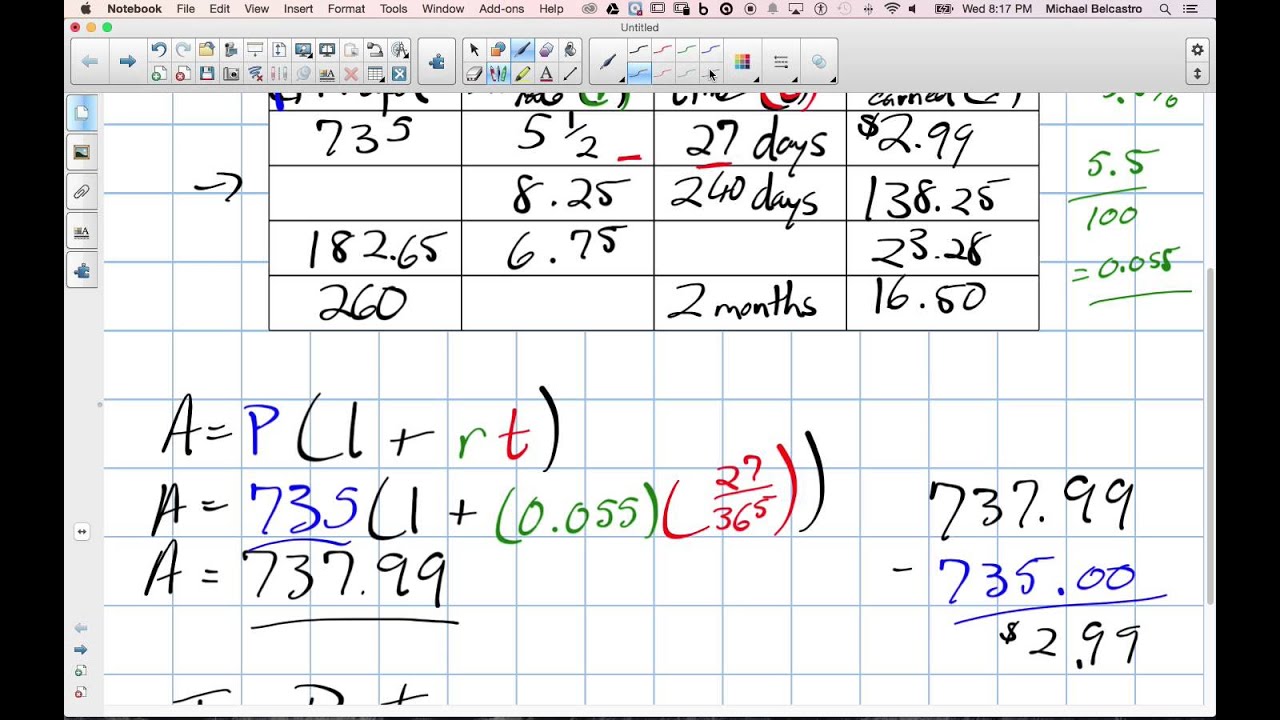 Notebook File Edit View Insert Format Tools Window Add-ons Help Wed 8:17 PM Michael Belcastro
Untitled
rate (r) time (t) earned (I)
735 5 1/2 27 days $2.99
→ 8.25 240 days 138.25
182.65 6.75 23.28
260 2 months 16.50
5.5
100
= 0.055
A = P(1 + rt)
A = 735(1 + (0.055)(27/365))
A = 737.99
737.99
- 735.00
$2.99